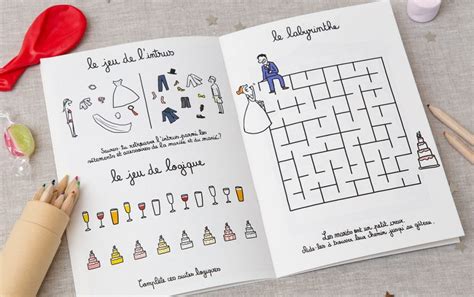 le jeu de l'intrus
Saurez-tu retrouver l'intrus parmi les
vêtements et accessoires de la mariée et du marié?
le jeu de logique
Complète ces suites logiques
le labyrinthe
Les mariés ont un petit creux.
Aide-les à trouver leur chemin jusqu'au gâteau.